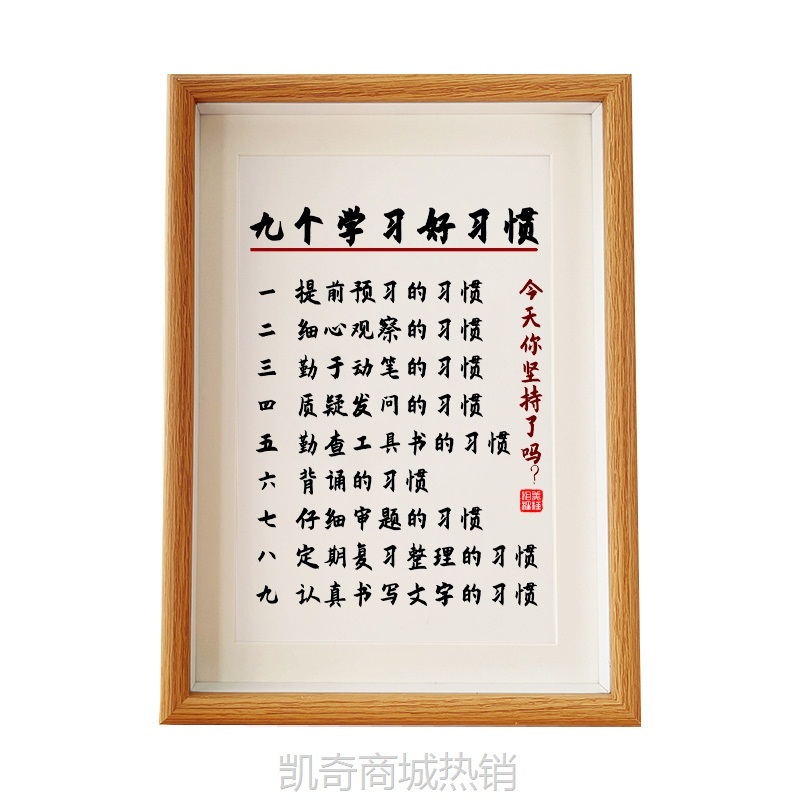 九个学习好习惯
一 提前预习的习惯
二 细心观察的习惯
三 勤于动笔的习惯
四 质疑发问的习惯
五 勤查工具书的习惯
六 背诵的习惯
七 仔细审题的习惯
八 定期复习整理的习惯
九 认真书写文字的习惯
今天你坚持了吗?
凯奇商城热销